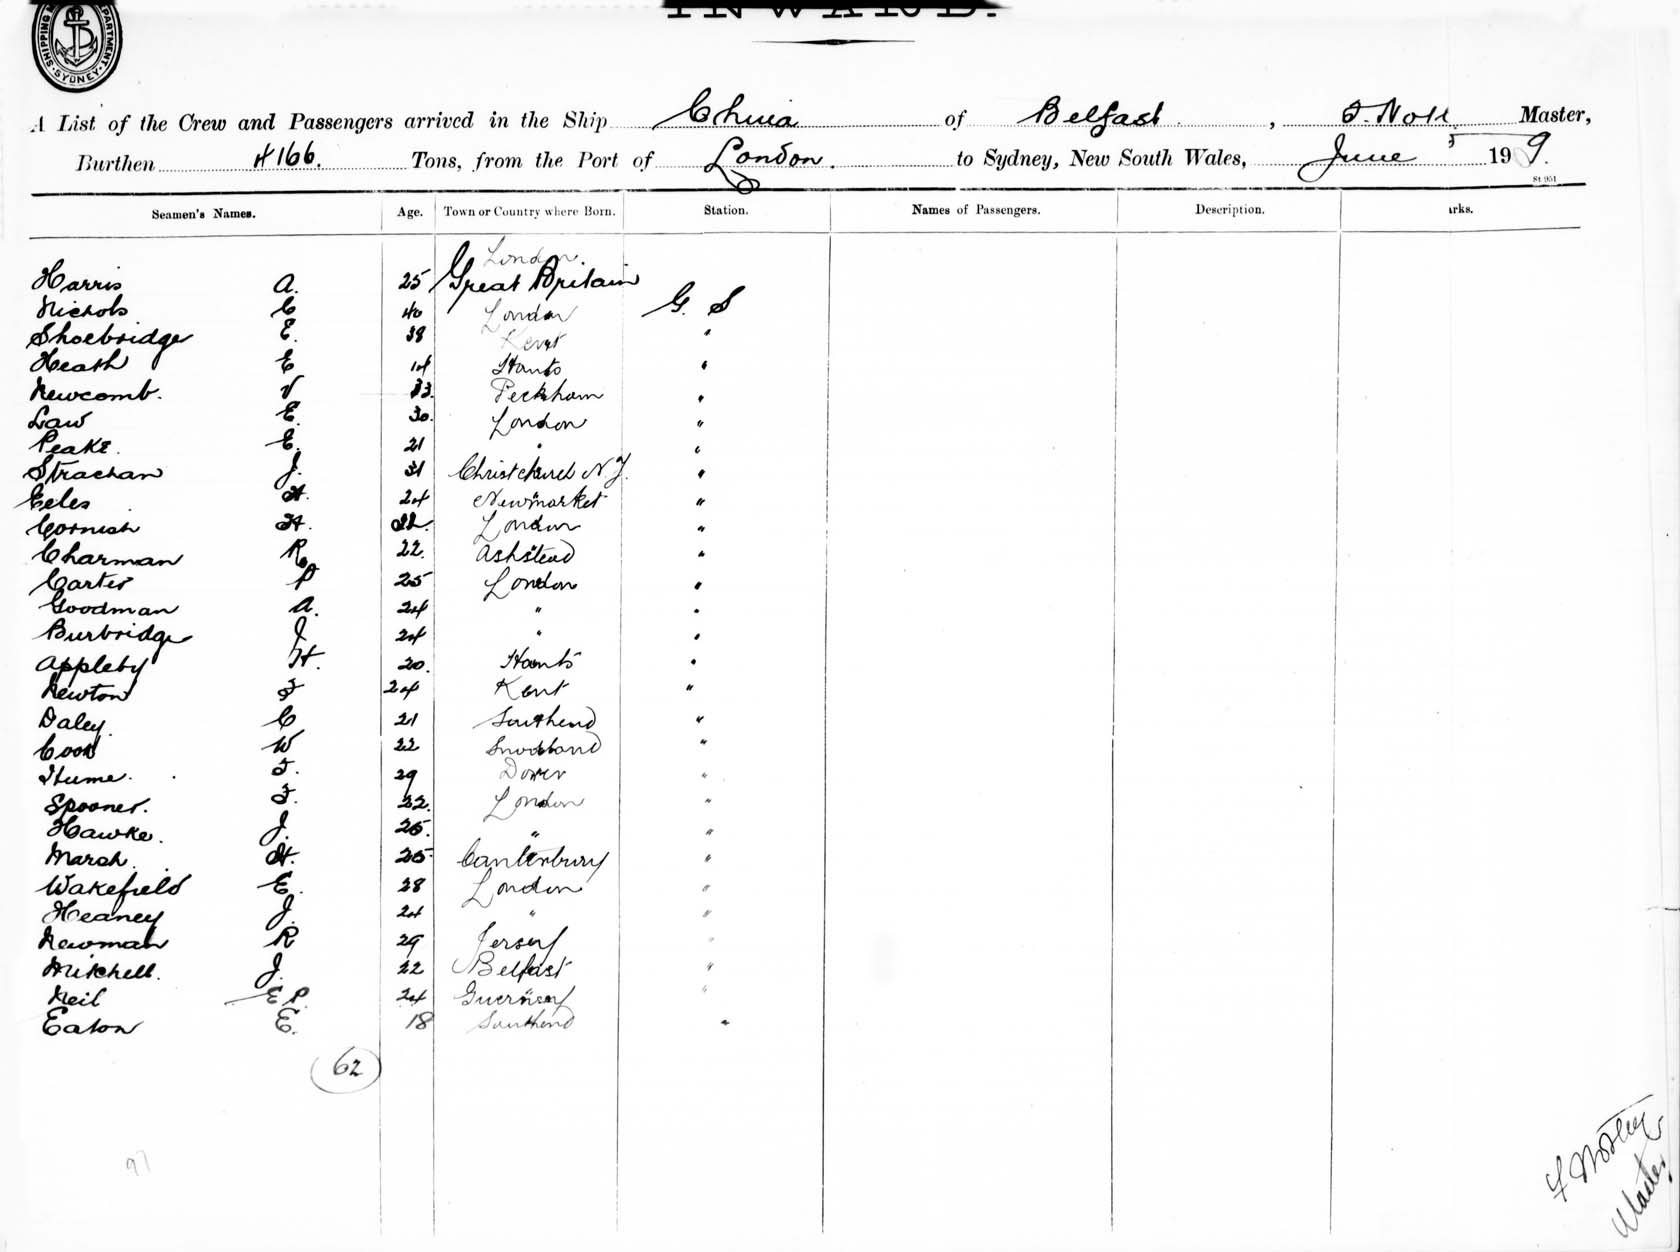 INWARD.
SHIPPING DEPARTMENT SYDNEY
A List of the Crew and Passengers arrived in the Ship China of Belfast, Master,
Burthen 4166. Tons, from the Port of London. to Sydney, New South Wales, June 5 1909.
St 951
Seamen's Names. Age. Town or Country where Born. Station. Names of Passengers. Description. arks.
London.
Harris A. 25 Great Britain
Nichols C 40 London G. S
Shoebridge E. 38 Kent "
Heath E 14 Hants "
Newcomb. V 33. Peckham "
Law E. 30. London "
Peake. E. 21 " "
Strachan J. 31 Christchurch N.Z. "
Eeles H. 24 Newmarket "
Cornish H. 22. London "
Charman R 22. Ashstead "
Carter P 25 London "
Goodman A. 24 " "
Burbridge J 24 " "
Appleby H. 20. Hants "
Newton F 24 Kent "
Daley. C 21 Southend "
Cook W 22 Snodland "
Hume. F. 29 Dover "
Spooner. F. 22. London "
Hawke. J. 25. " "
Marsh. H. 25 Canterbury "
Wakefield E. 28 London "
Heaney J. 24 " "
Newman R 29 Jersey "
Mitchell. J. 22 Belfast "
Neil E P. 24 Guernsey "
Eaton E. 18 Southend "
62
97
Master